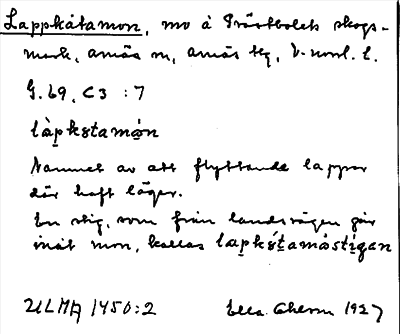 Lappkåtamon, mo å Prästbolets skogs-
mark, Arnäs sn, Arnäs tg, V-norrl. l.
G. 69, C3 :7
làpkɷtamǫ́n
Namnet av att flyttande lappar
där haft läger.
En stig, som från landsvägen går
inåt mon, kallas lapkɷ́tamǫ̀stigan
ULMA 1450:2 Ella Odherm 1927